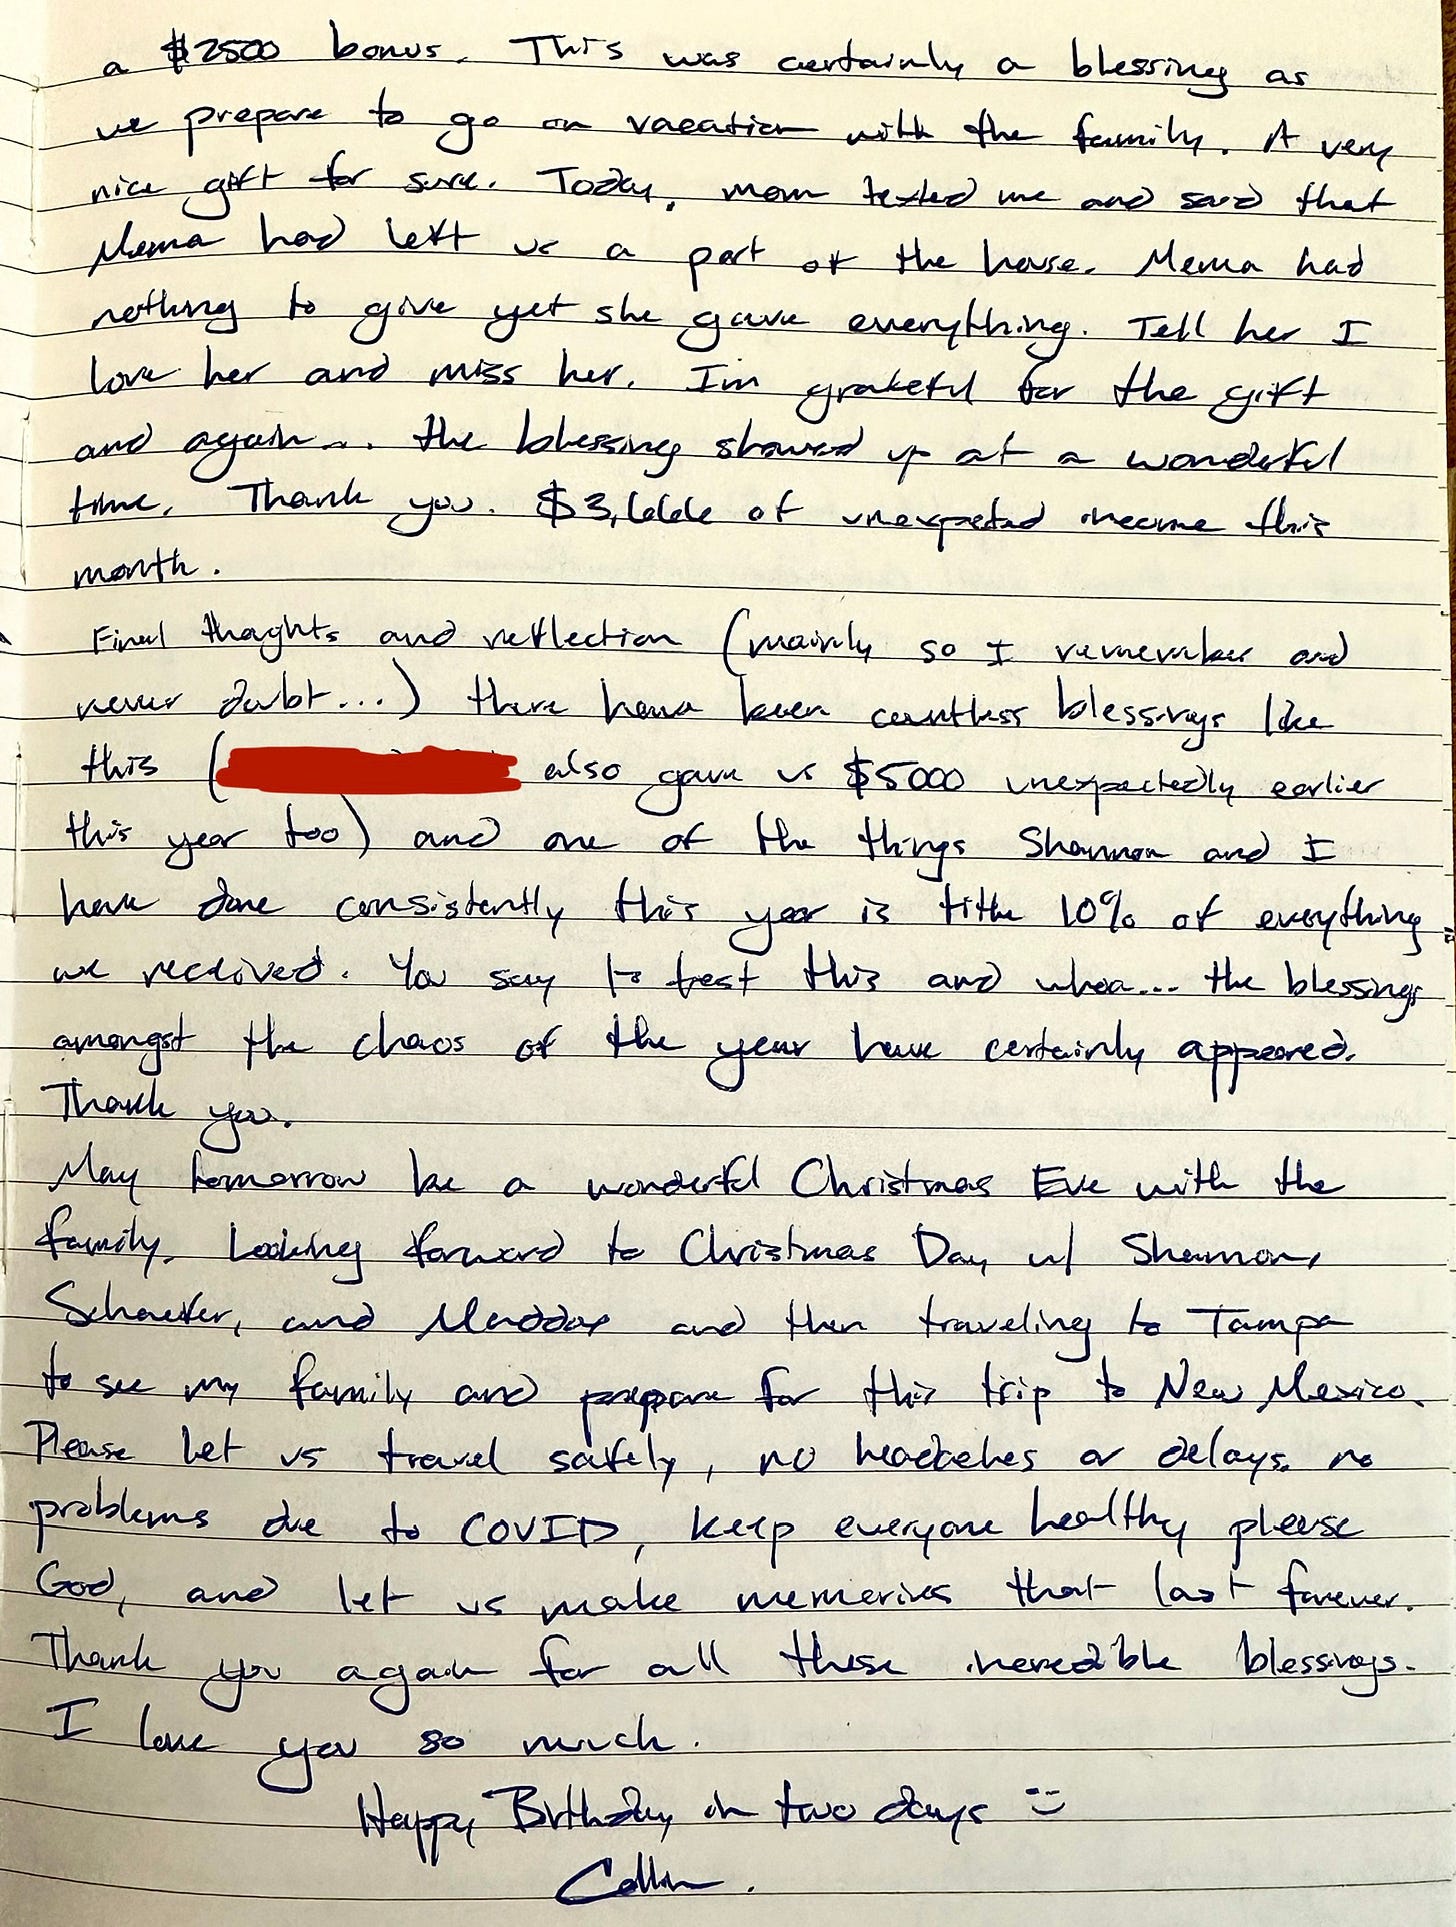 a $2500 bonus. This was certainly a blessing as
we prepare to go on vacation with the family. A very
nice gift for sure. Today, mom texted me and said that
Mema had left us a part of the house. Mema had
nothing to give yet she gave everything. Tell her I
love her and miss her. I'm grateful for the gift
and again... the blessing showed up at a wonderful
time. Thank you. $3,666 of unexpected income this
month.
Final thoghts and reflection (mainly so I remember and
never doubt...) there have been countless blessings like
this ( also gave us $5000 unexpectedly earlier
this year too) and one of the things Shannon and I
have done consistently this year is tithe 10% of everything
we received. You say to test this and whoa... the blessings
amongst the chaos of the year have certainly appeared.
Thank you.
May tomorrow be a wonderful Christmas Eve with the
family. Looking forward to Christmas Day w/ Shannon,
Schaefer, and Maddox and then traveling to Tampa
to see my family and prepare for this trip to New Mexico.
Please let us travel safely, no headaches or delays, no
problems due to COVID, keep everyone healthy please
God, and let us make memories that last forever.
Thank you again for all these incredible blessings.
I love you so much.
Happy Birthday in two days :)
Collin.